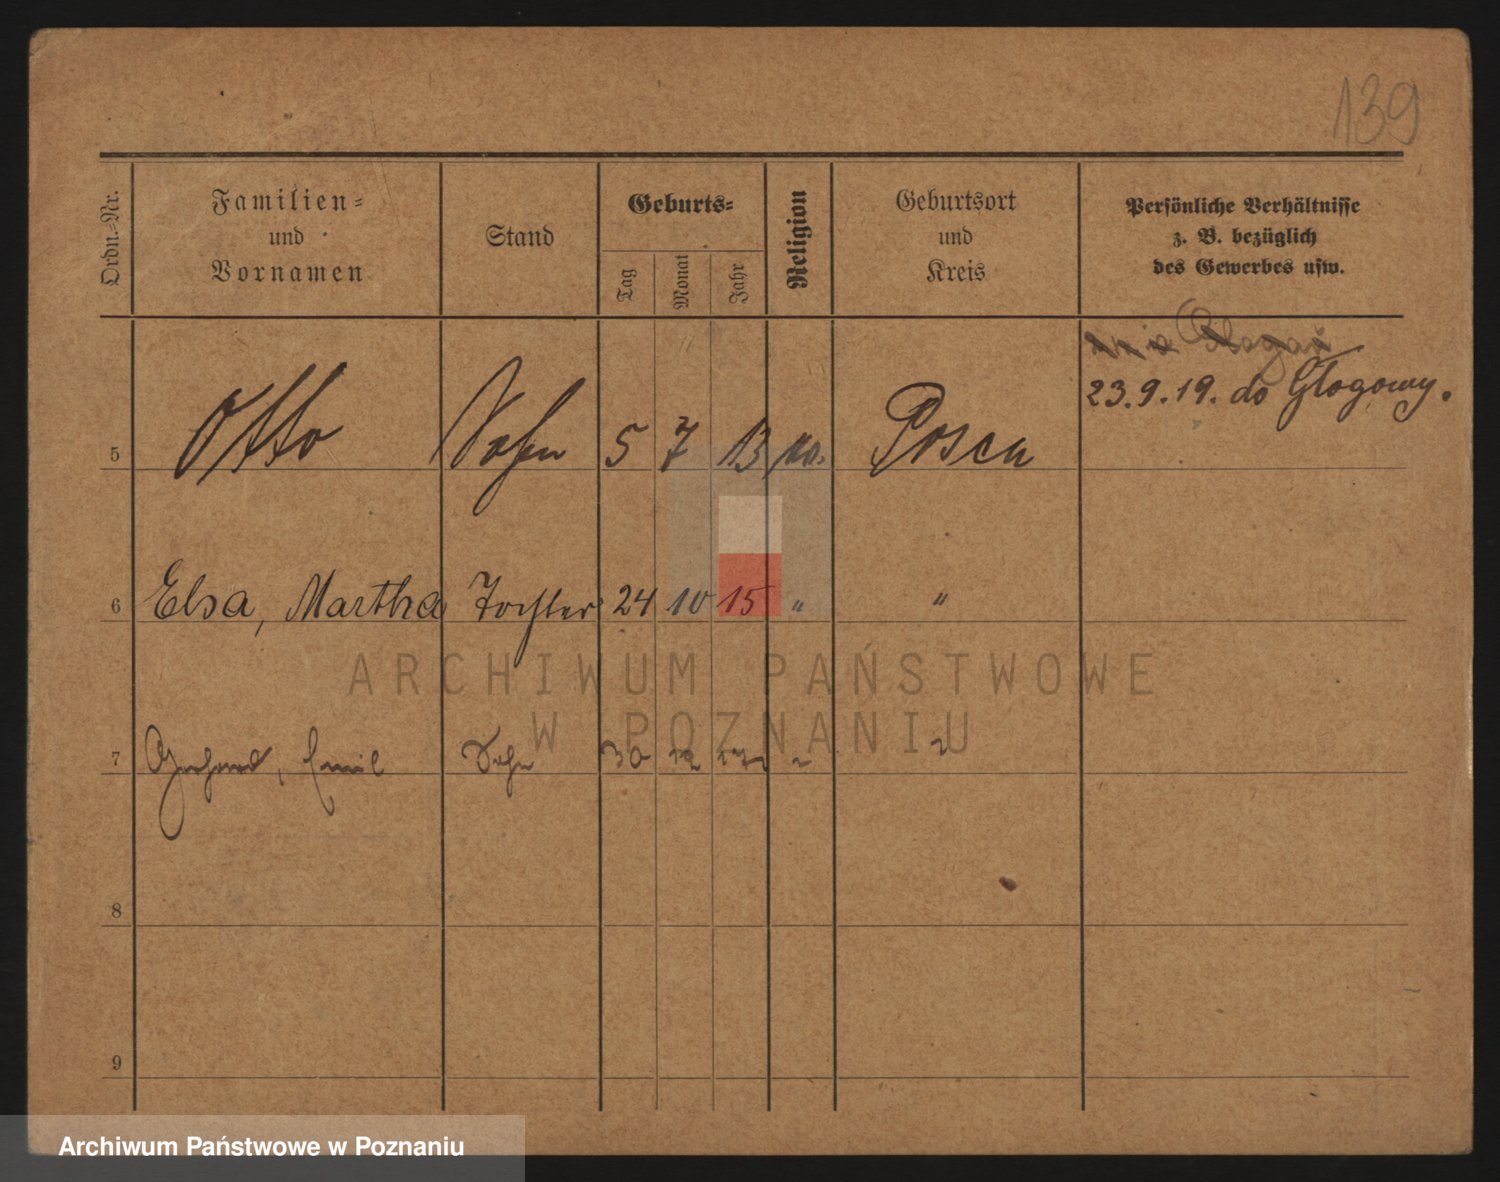 139
Ordn.-Nr.
Familien-
und
Vornamen
Stand
Geburts-
Tag
Monat
Jahr
Religion
Geburtsort
und
Kreis
Persönliche Verhältnisse
z. B. bezüglich
des Gewerbes usw.
23.9.19. do Głogowy.
5 Otto Sohn 5 7 13 Posen
6 Elsa, Martha Tochter 24 10 15 " "
7 Gerhard, Emil Sohn 30 12 17 " "
8
9
ARCHIWUM PAŃSTWOWE
W POZNANIU
Archiwum Państwowe w Poznaniu